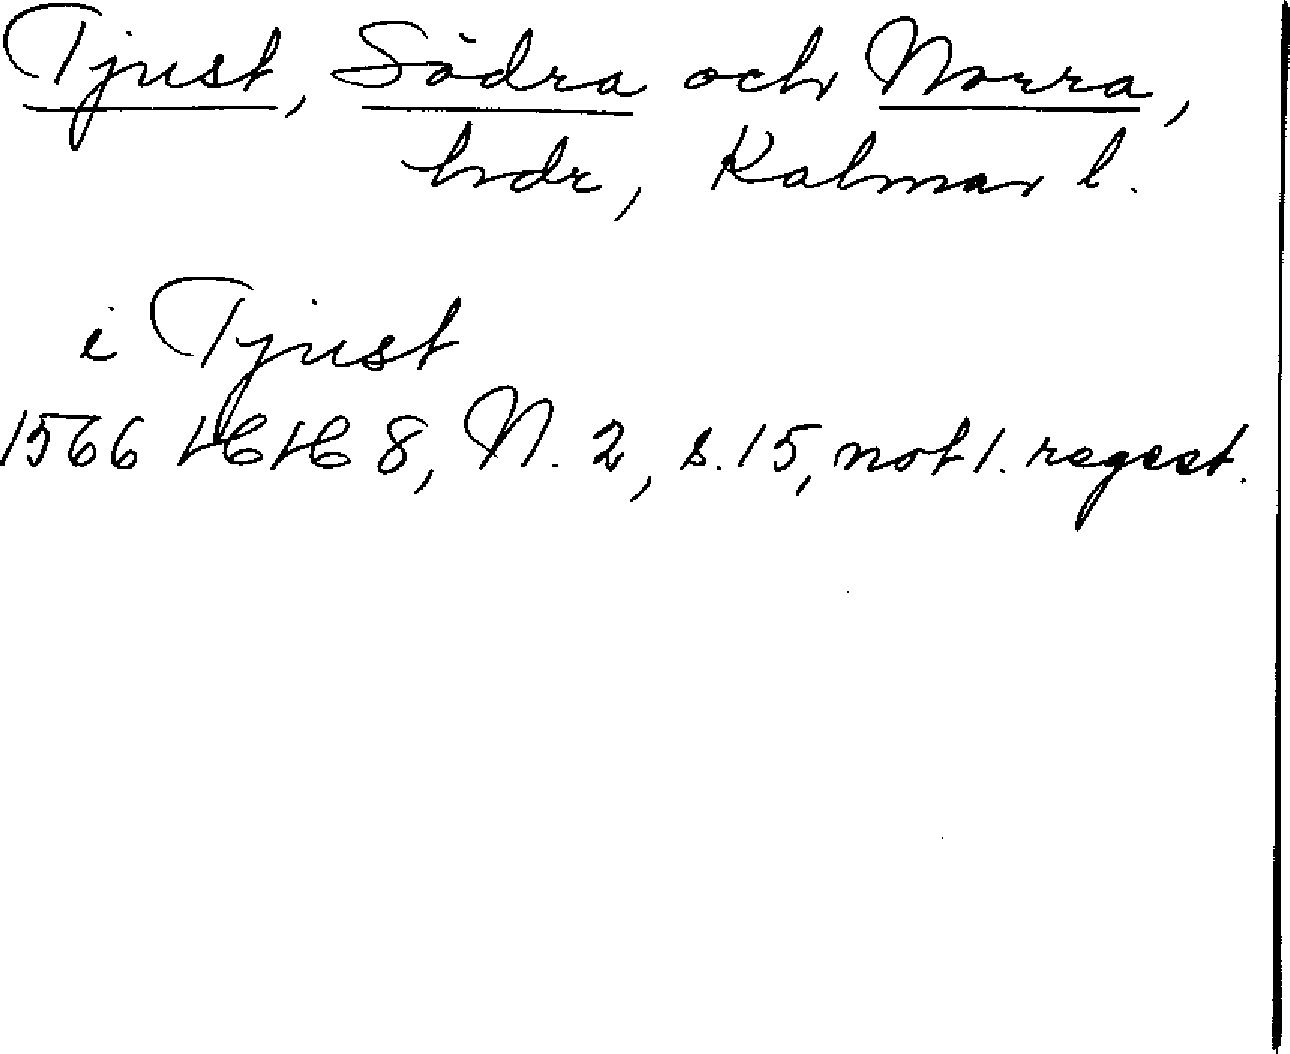 Tjust, Södra och Norra,
hdr, Kalmar l.
i Tjust
1566 HH 8, N. 2, s. 15, not 1. regest.